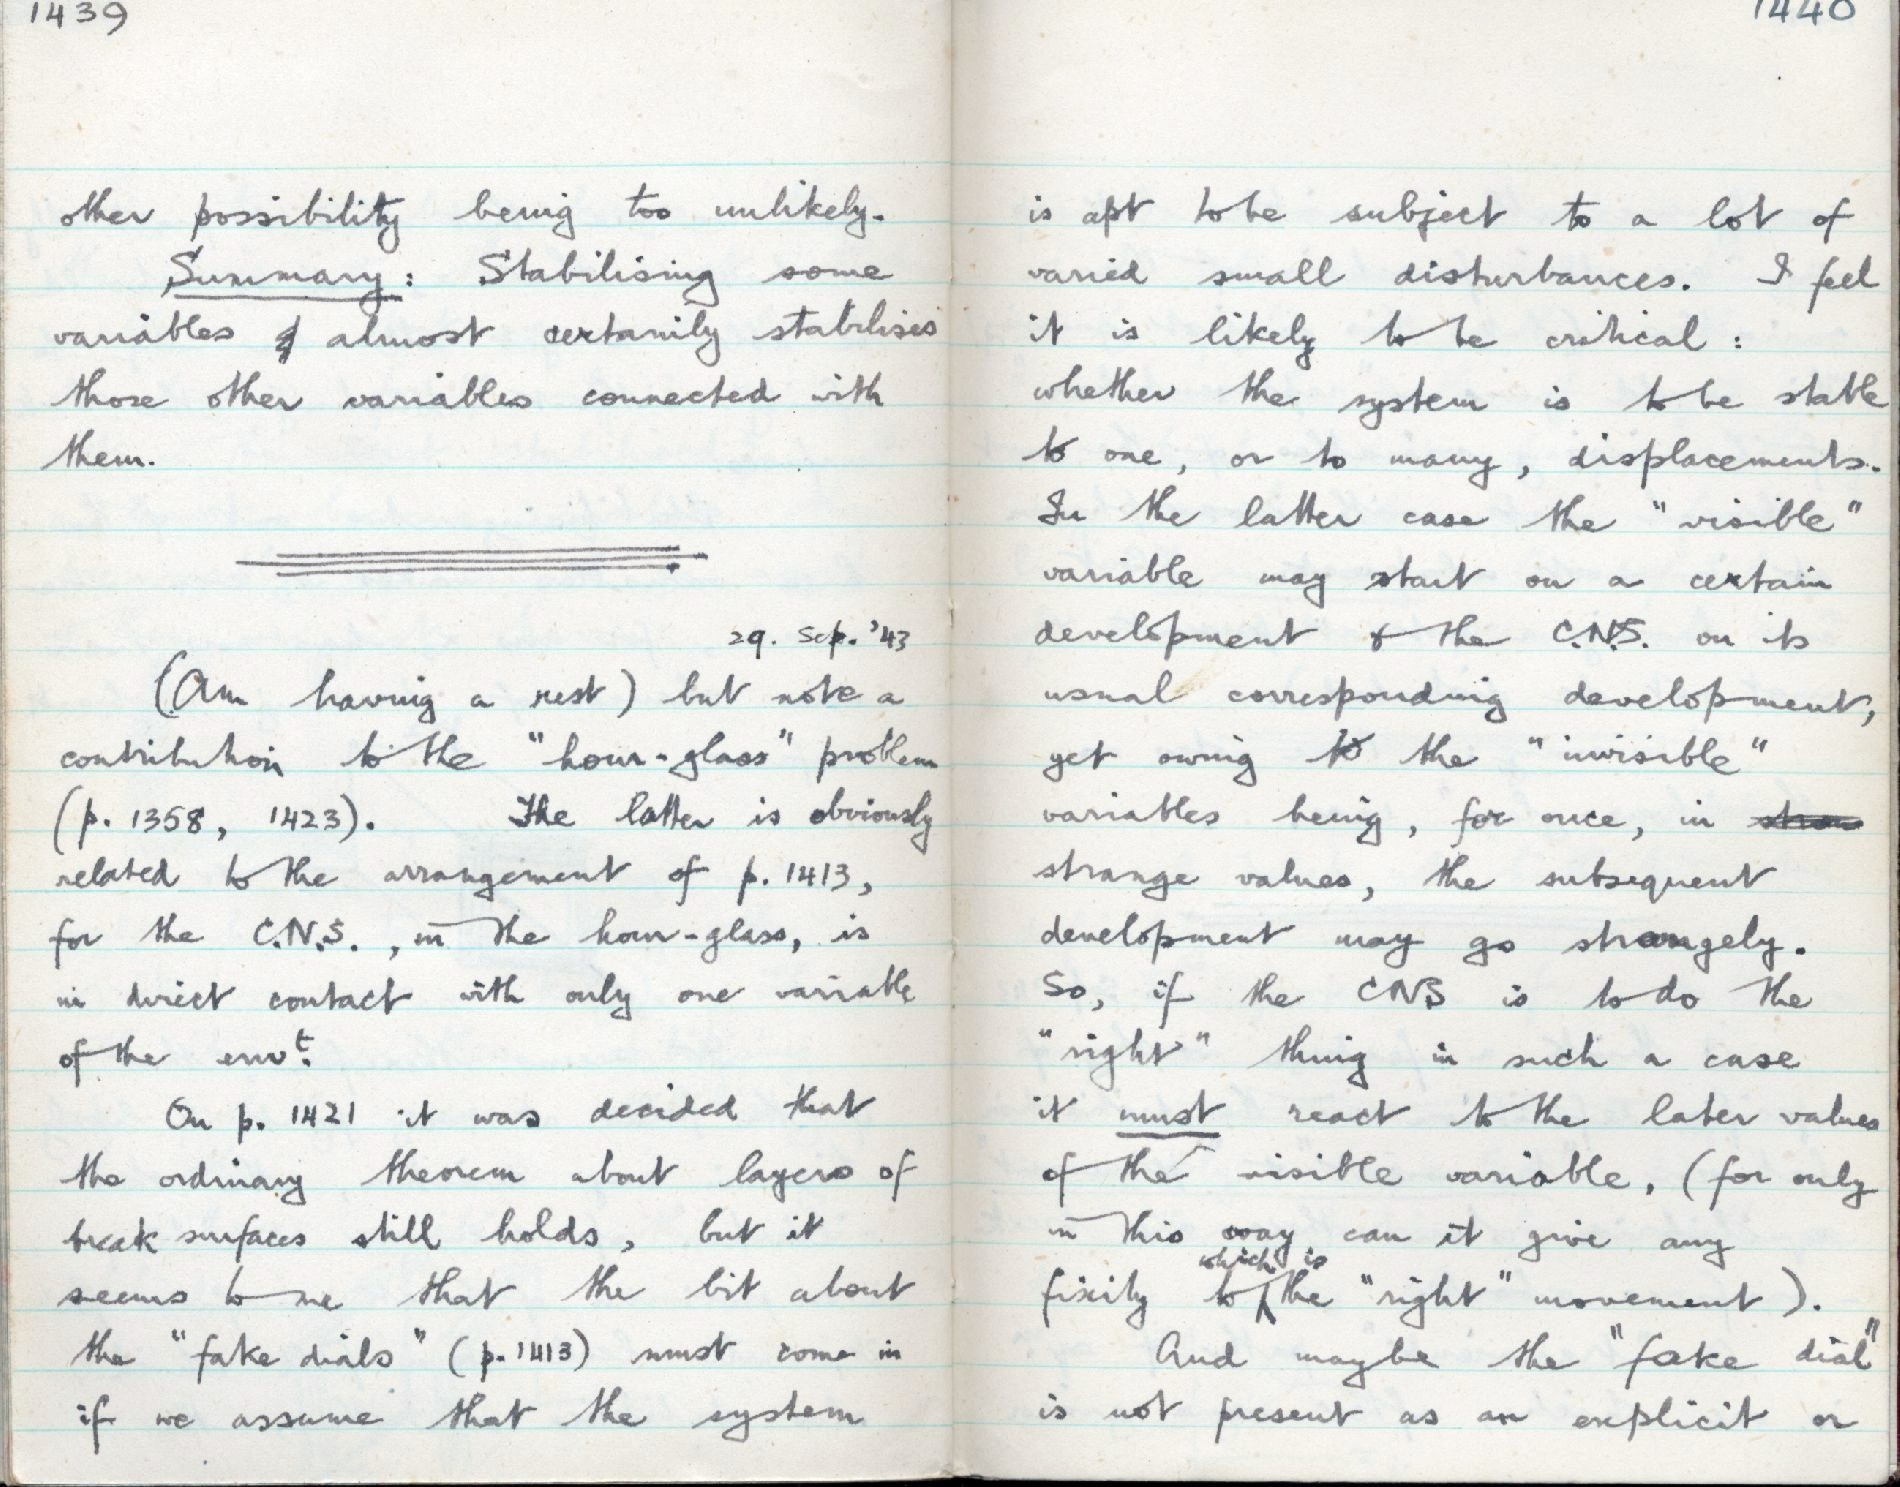 1439
other possibility being too unlikely.
Summary: Stabilising some
variables almost certainly stabilises
those other variables connected with
them.
29. Sep. '43
(Am having a rest) but note a
contribution to the "hour-glass" problem
(p. 1358, 1423). The latter is obviously
related to the arrangement of p. 1413,
for the C.N.S., in the hour-glass, is
in direct contact with only one variable
of the envt.
On p. 1421 it was decided that
the ordinary theorem about layers of
break surfaces still holds, but it
seems to me that the bit about
the "fake dials" (p. 1413) must come in
if we assume that the system
1440
is apt to be subject to a lot of
varied small disturbances. I feel
it is likely to be critical:
whether the system is to be stable
to one, or to many, displacements.
In the latter case the "visible"
variable may start on a certain
development & the C.N.S. on its
usual corresponding development,
yet owing to the "invisible"
variables being, for once, in
strange values, the subsequent
development may go strangely.
So, if the CNS is to do the
"right" thing in such a case
it must react to the later values
of the visible variable, (for only
in this way can it give any
fixity to which is the "right" movement).
And maybe the "fake dial"
is not present as an explicit or